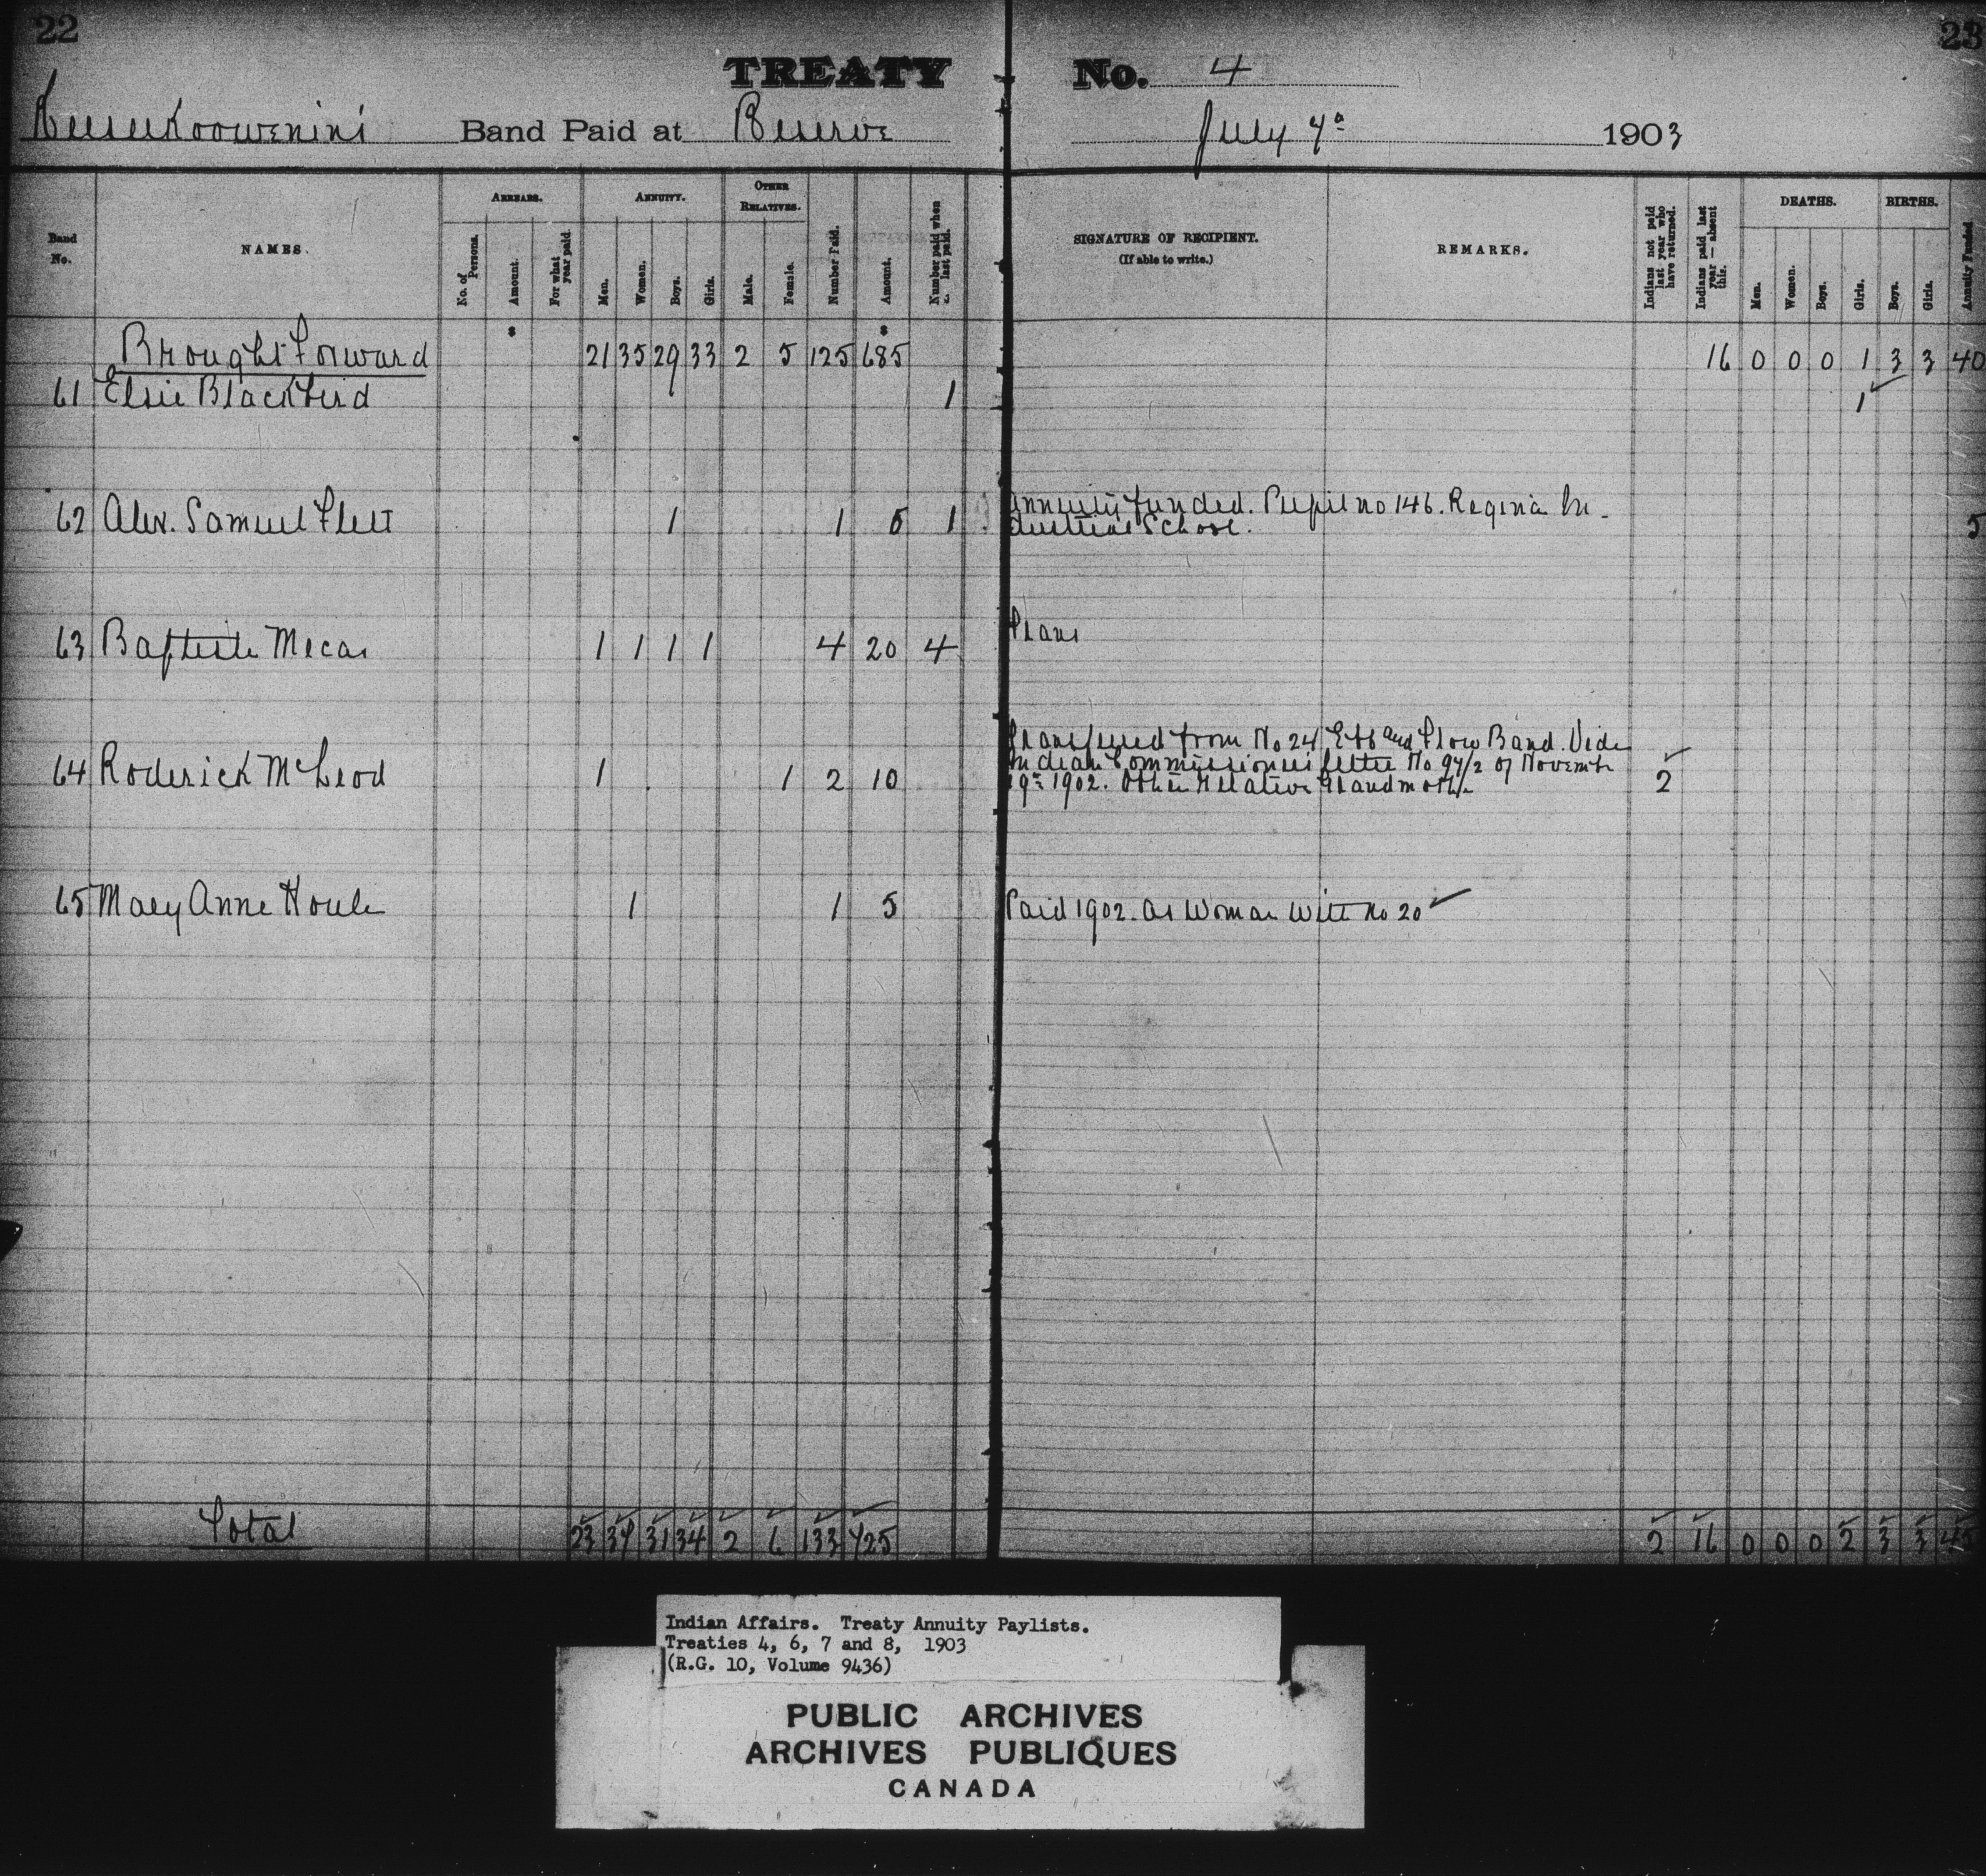 22
23
TREATY No. 4
Keeseekoowenin's Band Paid at Reserve July 7th 1903
Band No.
NAMES.
ARREARS.
No. of Persons.
Amount.
For what year paid.
ANNUITY.
Men.
Women.
Boys.
Girls.
OTHER RELATIVES.
Male.
Female.
Number Paid.
Amount.
Number paid when last paid.
SIGNATURE OF RECIPIENT.
(If able to write.)
REMARKS.
Indians not paid last year who have returned.
Indians paid last year — absent this.
DEATHS.
Men.
Women.
Boys.
Girls.
BIRTHS.
Boys.
Girls.
Annuity Funded
$ $
Brought Forward 21 35 29 33 2 5 125 685 16 0 0 0 1 3 3 40
61 Elsie Blackbird 1 1
62 Alex. Samuel Flett 1 1 5 1 Annuity funded. Pupil no 146. Regina In-
dustrial School. 5
63 Baptiste Mecas 1 1 1 1 4 20 4
64 Roderick McLeod 1 1 2 10 Transferred from No 24 Ebb and Flow Band. Vide
Indian Commissioner's letter No 97/2 of November
19th 1902. Other Relative Grandmother 2
65 Mary Anne Houle 1 1 5 Paid 1902. as Woman with no 20
Total 23 37 31 34 2 6 133 725 2 16 0 0 0 2 3 3 45
Indian Affairs. Treaty Annuity Paylists.
Treaties 4, 6, 7 and 8, 1903
(R.G. 10, Volume 9436)
PUBLIC ARCHIVES
ARCHIVES PUBLIQUES
CANADA